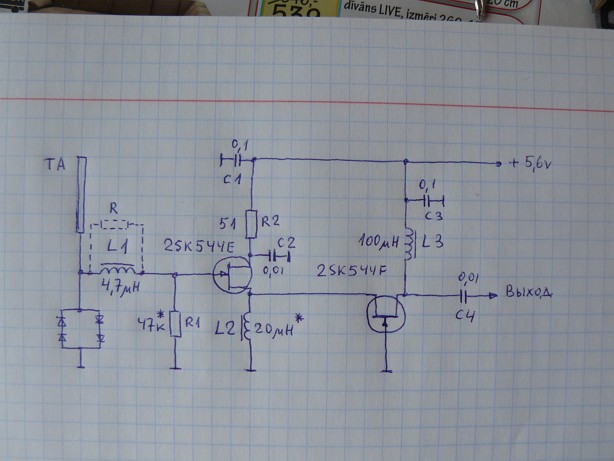 539
20 cm
dīvāns LIVE, izmēri 260
TA
R
L1
4,7μH
47к*
R1
2SK544E
0,1
C1
51
R2
C2
0,01
L2
20μH*
2SK544F
100μH
L3
0,1
C3
+5,6v
0,01
C4
Выход